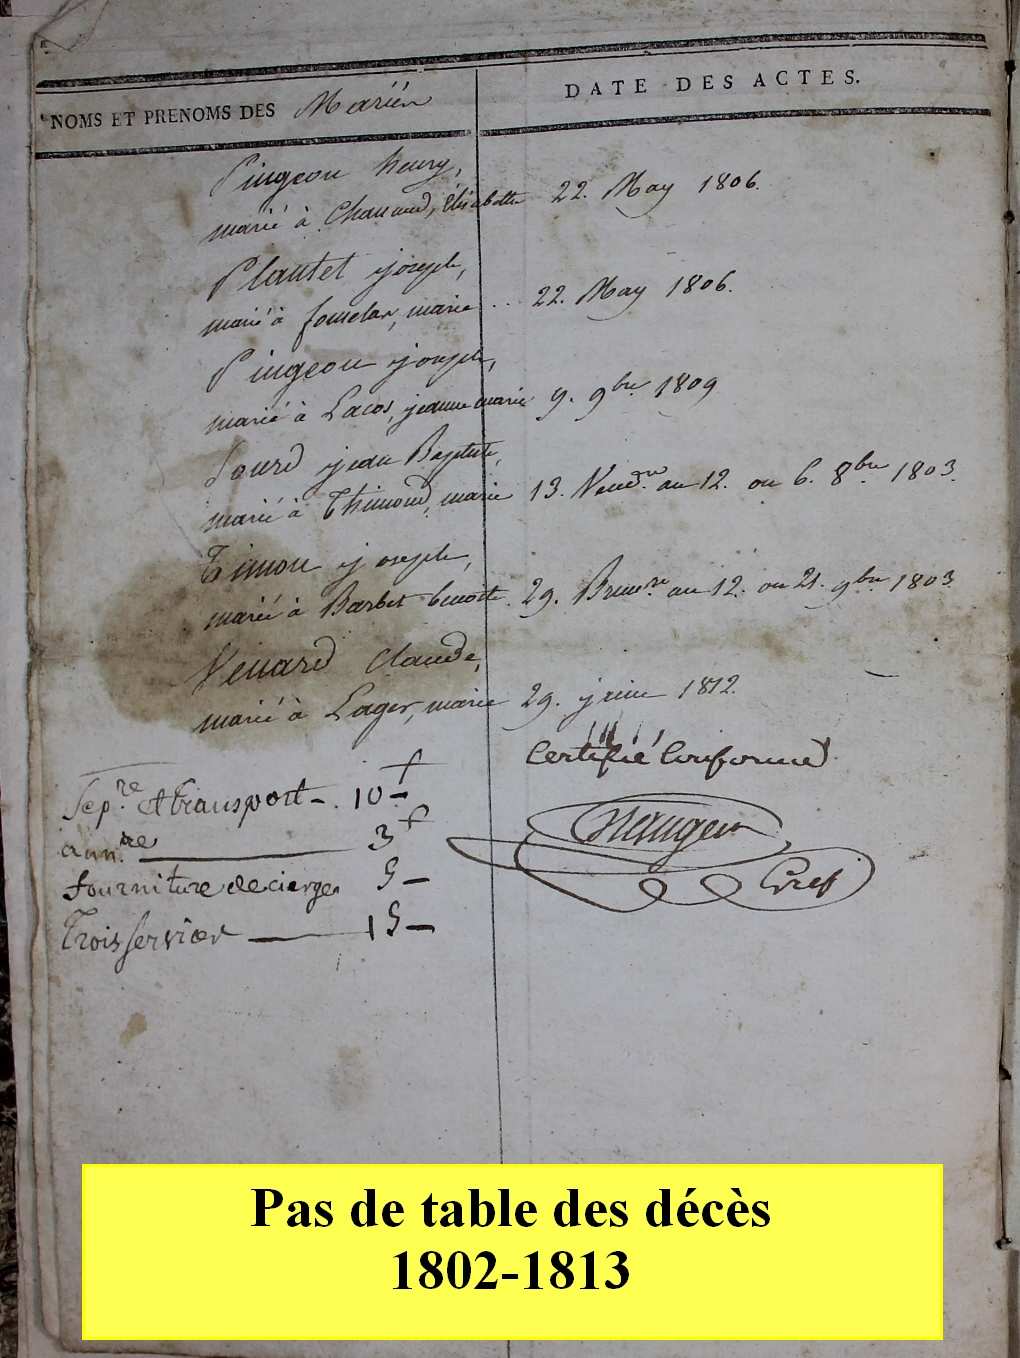 NOMS ET PRENOMS DES Mariés
DATE DES ACTES.
Pingeon henry,
marié à Chanaud, Elisabette 22. May 1806.
Plantet joseph,
marié à marie ... 22. May 1806.
Pingeon joseph,
marié à Lacos, jeanne marie 9. 9bre 1809
Sourd jean Baptiste,
marié à Thimond, marie 13. Vendre an 12. ou 6. 8bre 1803.
Timon joseph,
marié à Barbet benoite. 29. Brumre an 12. ou 21. 9bre 1803.
Venard Claude,
marié à Lager, marie 29. juin 1812.
Certifié Conforme
Sepre et transport - . 10 -
annre 3
Gref
fourniture de cierges 5 -
Trois services 15 -
Pas de table des décès
1802-1813